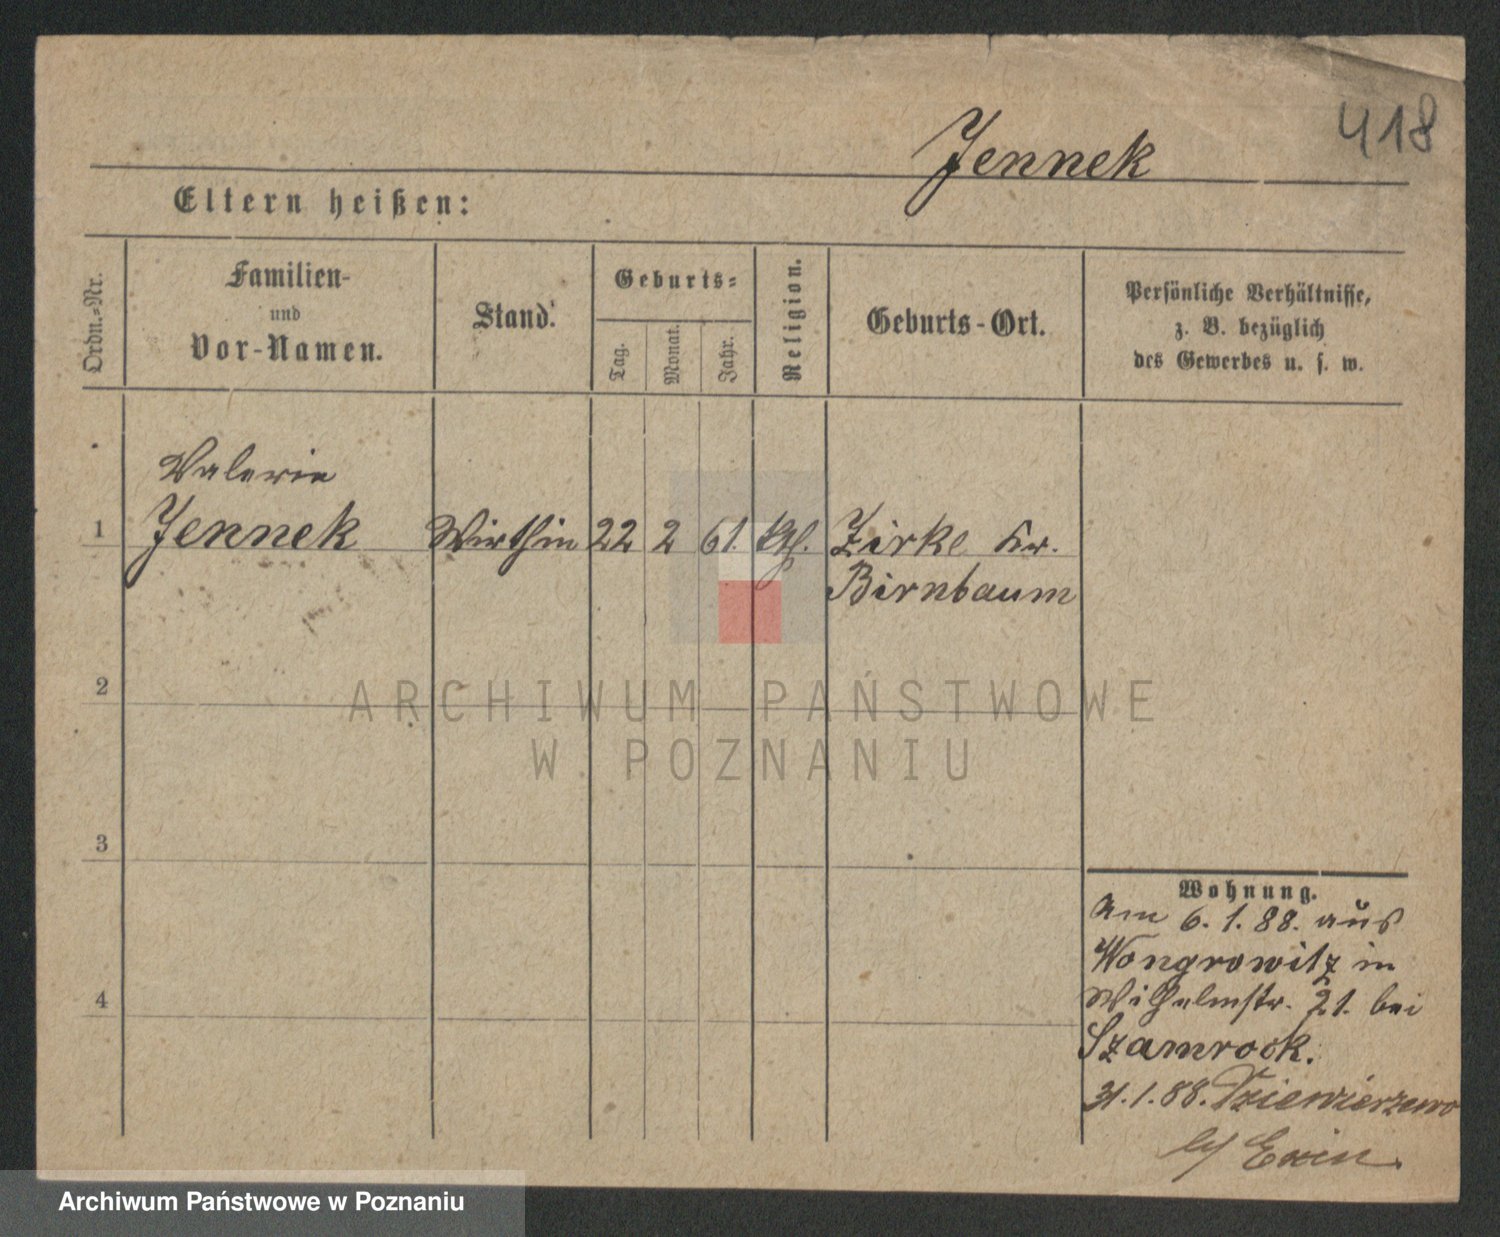 418
Jennek
Eltern heißen:
Ordn.-Nr.
Familien-
und
Vor-Namen.
Stand.
Geburts-
Tag.
Monat.
Jahr.
Religion.
Geburts-Ort.
Persönliche Verhältnisse,
z. B. bezüglich
des Gewerbes u. s. w.
Valerie
1 Jennek Wirthin 22 2 61. kth. Zirke Kr.
Birnbaum
2
ARCHIWUM PAŃSTWOWE
W POZNANIU
3
4
Wohnung.
Am 6.1.88. aus
Wongrowitz in
Wilhelmstr. 21. bei
Szamrock.
31.1.88. Dziewierzewo
b/ Exin.
Archiwum Państwowe w Poznaniu